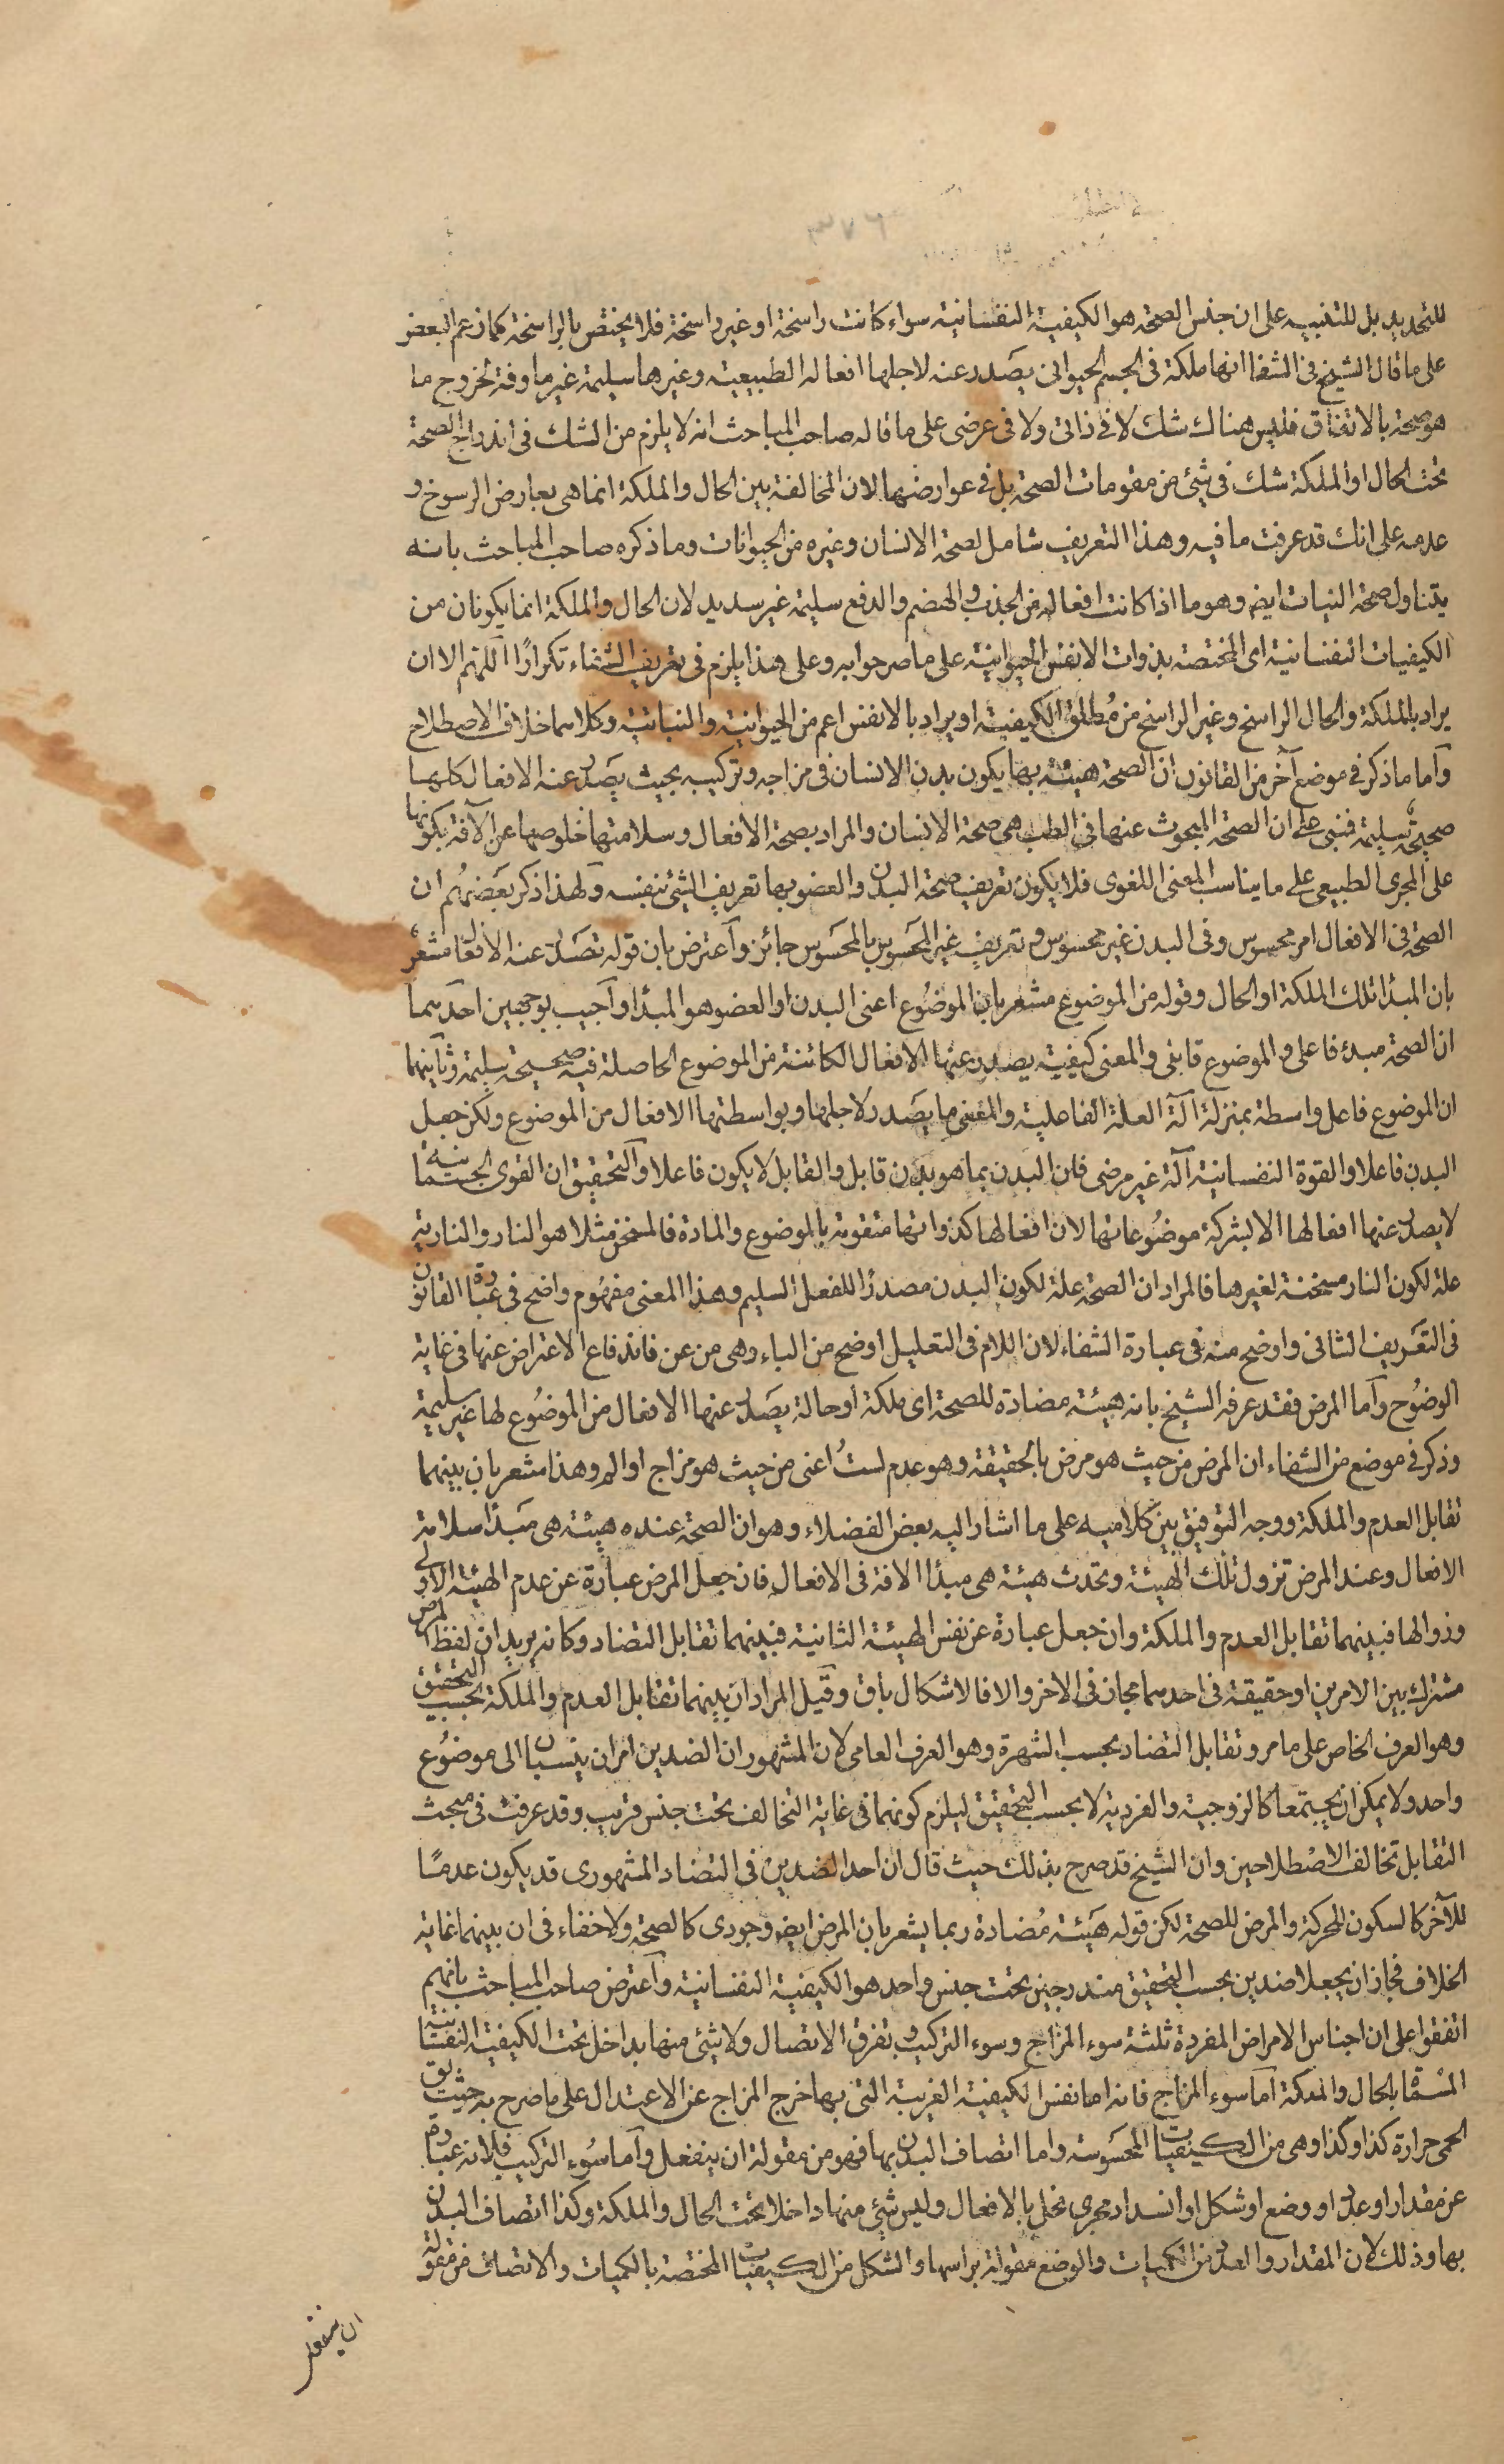 للتحديد بل للتنبيه على ان جنس الصحة هو الكيفية النفسانية سواء كانت راسخة او غير راسخة فلا يختص بالراسخة كما زعم البعض
على ما قال الشيخ فى الشفا انها ملكة فى الجسم الحيوانى يصدر عنه لاجلها افعاله الطبيعية وغيرها سليمة غير ماوفة لخروج ما
هو صحة بالاتفاق فليس هناك شك لا فى ذاتى ولا فى عرضى على ما قاله صاحب المباحث انه لا يلزم من الشك فى اندراج الصحة
تحت الحال او الملكة شك فى شئ من مقومات الصحة بل فى عوارضها لان المخالفة بين الحال والملكة انما هى بعارض الرسوخ و
عدمه على انك قد عرفت ما فيه وهذا التعريف شامل لصحة الانسان وغيره من الحيوانات وما ذكره صاحب المباحث بانه
يتناول صحة النبات ايض وهو ما اذا كانت افعاله من الجذب والهضم والدفع سليمة غير سديد لان الحال والملكة انما يكونان من
الكيفيات النفسانية اى المختصة بذوات الانفس الحيوانية على ما صرحوا به وعلى هذا يلزم فى تعريف الشفاء تكرارًا اللهم الا ان
يراد بالملكة والحال الراسخ وغير الراسخ من مُطلق الكيفية او يراد بالانفس اعم من الحيوانية والنباتية وكلاهما خلاف الاصطلاح
وآما ما ذكر فى موضع آخر من القانون ان الصحة هيئة بها يكون بدن الانسان فى مزاجه وتركيبه بحيث يصدر عنه الافعال كلها
صحيحة سليمة فنبى على ان الصحة المبحوث عنها فى الطب هى صحة الانسان والمراد بصحة الافعال وسلامتها خلوصها عن الآفة بكونها
على المجرى الطبيعى على ما يناسب المعنى اللغوى فلا يكون تعريف صحة البدن والعضو بها تعريف الشئ بنفسه ولهذا ذكر بَعَضهُم ان
الصحة فى الافعال امر محسوس وفى البدن غير محسوس وتعريف غير المحَسَوس بالمحَسَوس جائز وآعترض بان قوله تصدر عنه الافعال مشعر
بان المبدأ تلك الملكة او الحال وقوله من الموضوع مشعر بان الموضُوع اعنى البدن او العضو هو المبدأ وآجيب بوجهين احدهما
ان الصحة مبدء فاعلى والموضوع قابلى والمعنى كيفية يصدر عنها الافعال الكائنة من الموضوع الحاصلة فيه صحيحة سليمة وثآنيهما
ان الموضوع فاعل واسطة بمنزلة آلة العلة الفاعلية والمعنى ما يصَدر لاجلها وبواسطتها الافعال من الموضوع ولكن جعل
البدن فاعلا والقوة النفسانية آلة غير مرضى فان البدن بما هو بدن قابل والقابل لا يكون فاعلا والتحقيق ان القوى الجسمانية
لا يصدر عنها افعالها الا بشركة موضُوعاتها لان افعالها كذواتها متقومة بالموضوع والمادة فالمسخن مثلا هو النار والنارية
علة لكون النار مسخنة لغيرها فالمراد ان الصحة علة لكون البدن مصدرًا للفعل السليم وهذا المعنى مفهُوم واضح فى عبارة القانون
فى التعَريف الثانى واوضح منه فى عبارة الشفاء لان اللام فى التعليل اوضح من الباء وهى من عن فاندفاع الاعتراض عنها فى غاية
الوضُوح وآما المرض فقد عرفه الشيخ بانه هيئة مضادة للصحة اى ملكة او حالة يصَدر عنها الافعال من الموضُوع لها غير سليمة
وذكر فى موضع من الشفاء ان المرض من حيث هو مرض بالحقيقة وهو عدم لستُ اعنى من حيث هو مزاج او الم وهذا مشعر بان بينهما
تقابل العدم والملكة ووجه التوفيق بين كلاميه على ما اشار اليه بعض الفضلاء وهو ان الصحة عنده هيئة هى مَبدأ سلامة
الافعال وعند المرض تزول تلك الهيئة وتحدث هيئة هى مبدأ الافة فى الافعال فان جعل المرض عبارة عن عدم الهيئة الاولى
وزوالها فبينهما تقابل العدم والملكة وان جعل عبارة عن نفس الهيئة الثانية فبينهما تقابل التضاد وكانه يريد ان لفظ المرض
مشترك بين الامرين او حقيقة فى احدهما مجاز فى الاخر والا فالاشكال باق وقَيل المراد ان بينهما تقابل العدم والملكة بحسب التحقيق
وهو العرف الخاص على ما مر وتقابل التضاد بحسب الشهرة وهو العرف العامى لان المشهور ان الضدين امران ينسبان الى موضوُع
واحد ولا يمكن ان يجتمعا كالزوجية والفردية لا بحسب التحقيق ليلزم كونهما فى غاية التخالف تحت جنس قريب وقد عرفت فى مبحث
التقابل تخالف الاصْطلاحين وان الشيخ قد صرح بذلك حيث قال ان احد الضدين فى التضاد المشهورى قد يكون عدمًا
للآخر كالسكون للحركة والمرض للصحة لكن قوله هَيَئة مُضادة ربما يشعر بان المرض ايض وجودى كالصحة ولا خفاء فى ان بينهما غاية
الخلاف فجاز ان يجعلا ضدين بحسب التحقيق مندرجين تحت جنس واحد هو الكيفية النفسانية وآعترض صاحب المباحث بانهم
اتفقوا على ان اجناس الامراض المفردة ثلثة سوء المزاج وسوء التركيب وتفرق الاتصال ولا شئ منها بداخل تحت الكيفية النفسانية
المسماة بالحال والملكة آما سوء المزاج فانه اما نفس الكيفية الغريبة التى بها خرج المزاج عن الاعتدال على ما صرح به حيث يق
الحمى حرارة كذا وكذا وهى من الكيفيات المحسَوسة واما اتصاف البدن بها فهو من مقولة ان ينفعل وآما سُوء التركيب فلانه عبارة
عن مقدار او عدد او وضع او شكل او انسداد مجرى يخل بالافعال وليس شئ منها داخلا تحت الحال والملكة وكذا اتصاف البدن
بها وذلك لان المقدار والعدد من الكميات والوضع مقولة براسها والشكل من الكيفيات المختصة بالكميات والاتصاف من مقولة
ان ينفعل